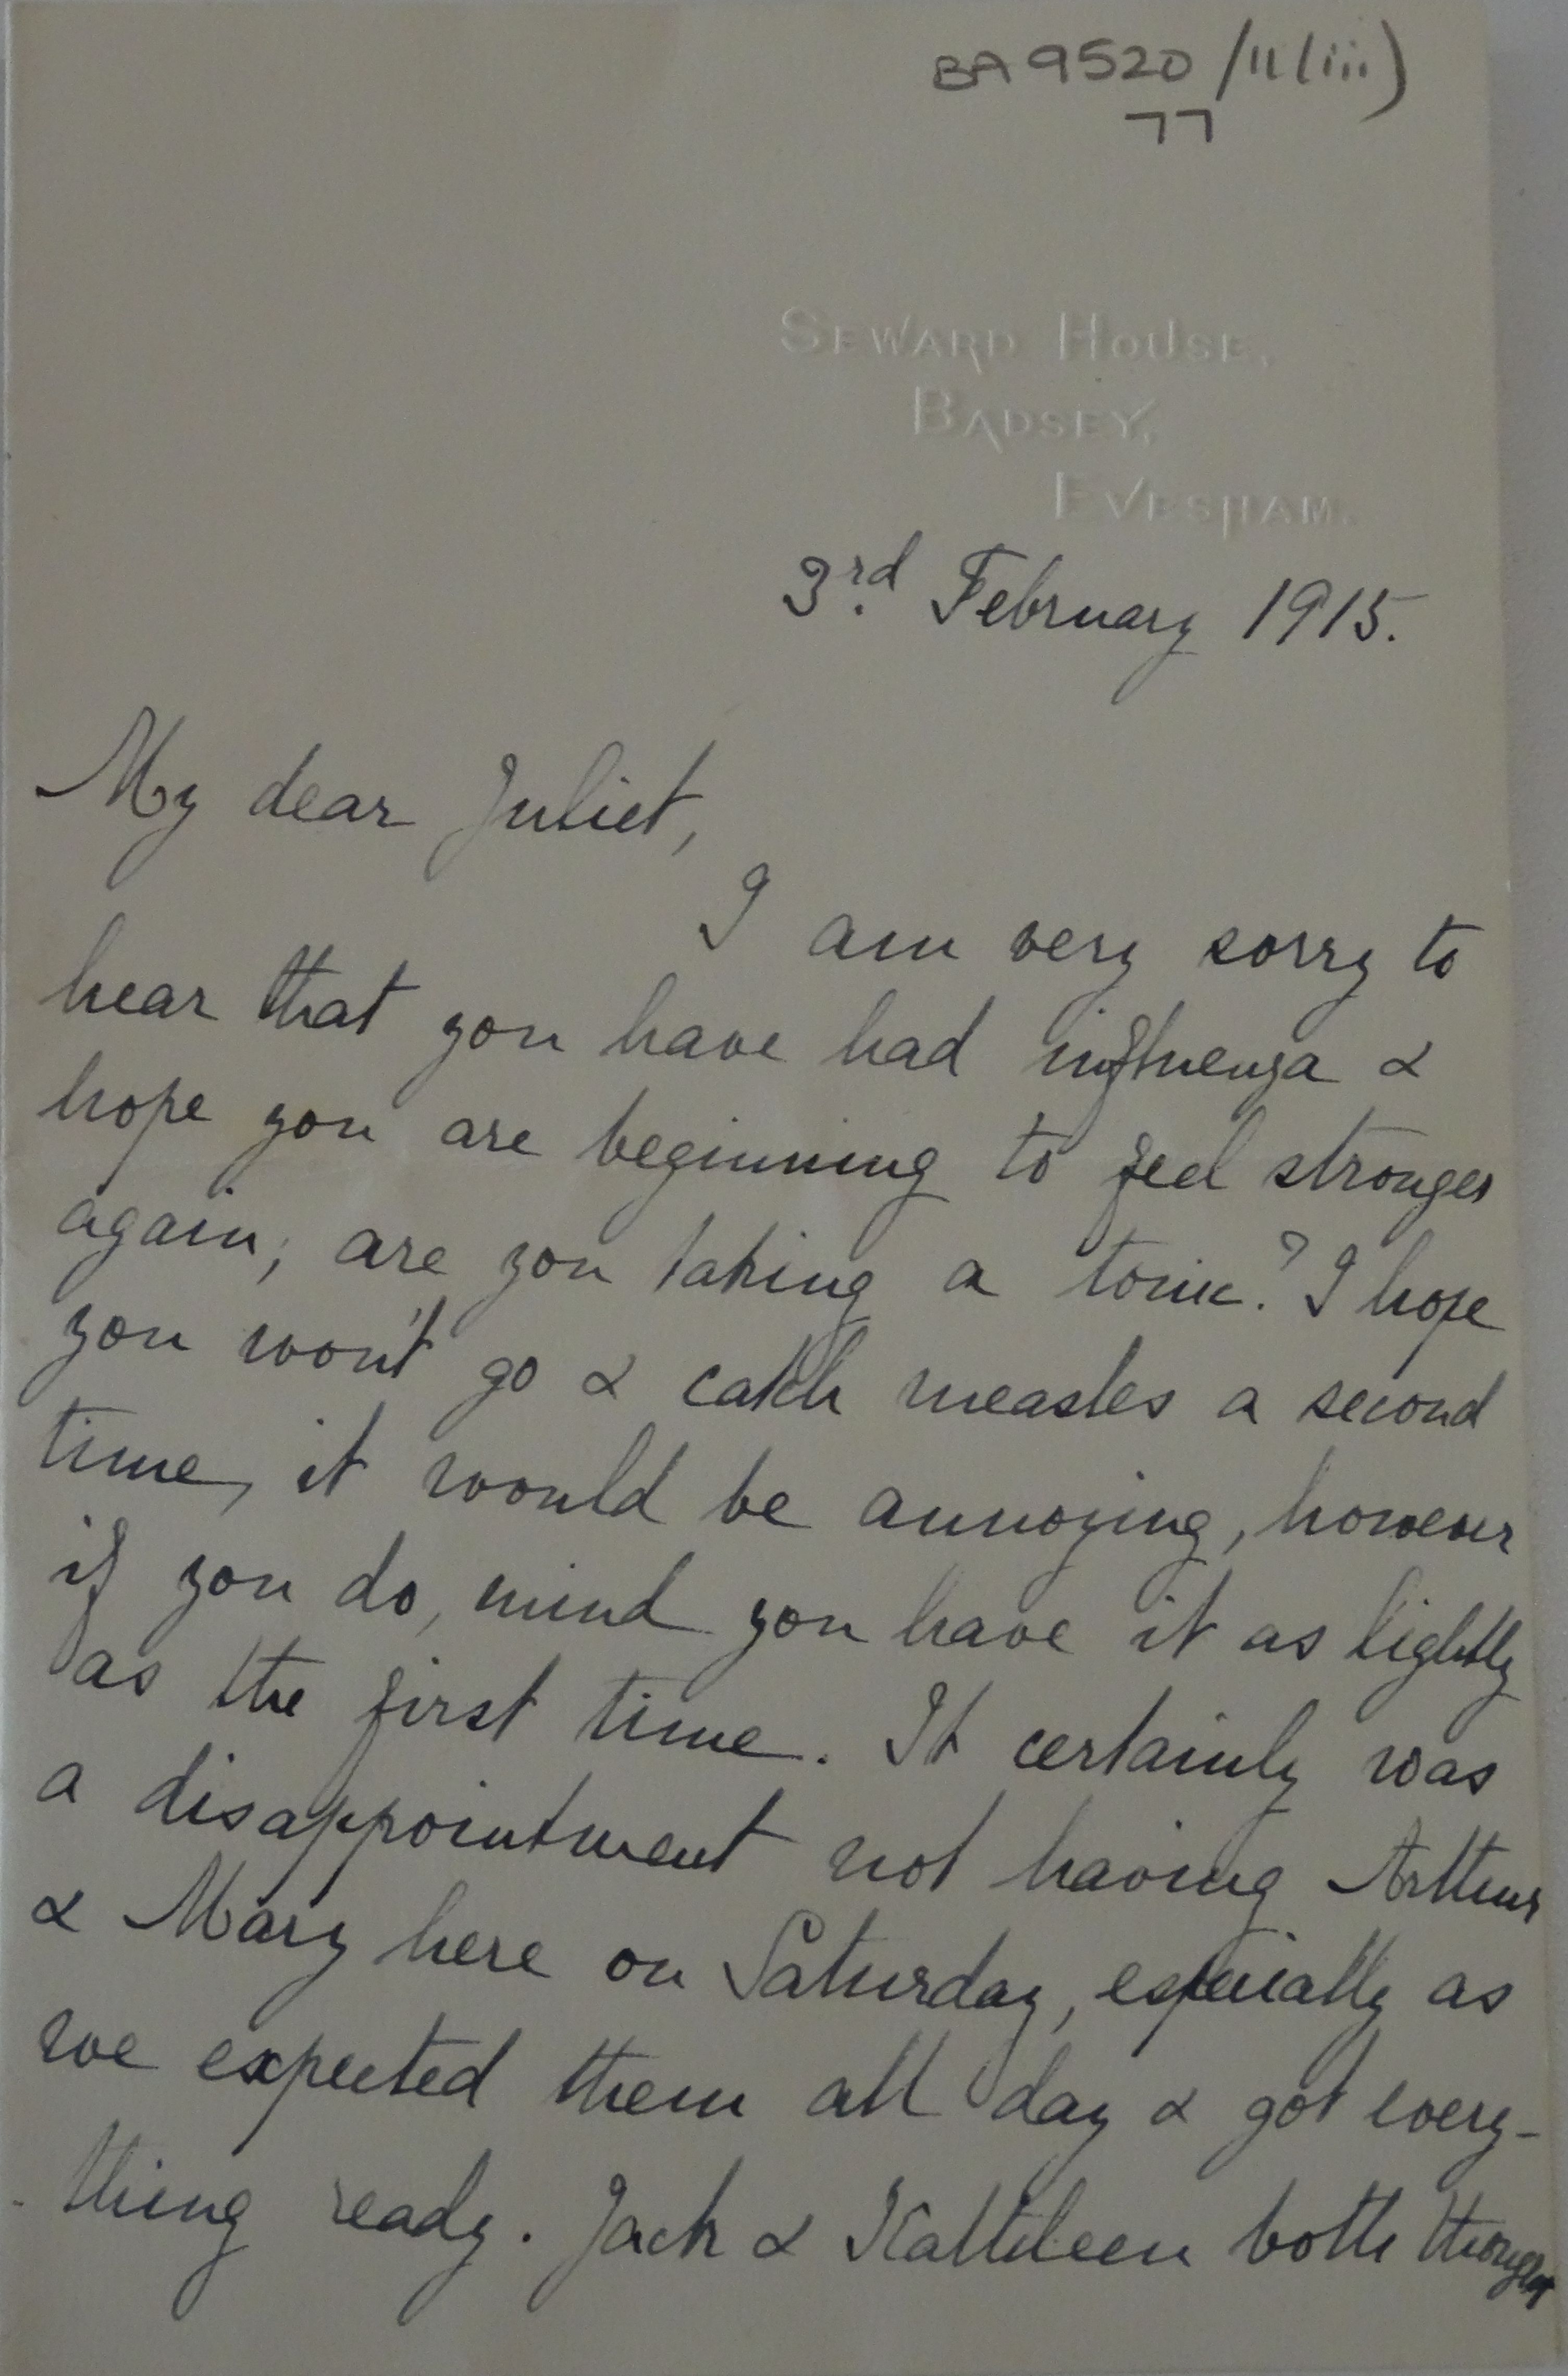 BA 9520/11(iii)
77
SEWARD HOUSE,
BADSEY,
EVESHAM.
3rd. February 1915.
My dear Juliet,
I am very sorry to
hear that you have had influenza &
hope you are beginning to feel stronger
again; are you taking a tonic? I hope
you won't go & catch measles a second
time, it would be annoying, however
if you do, mind you have it as lightly
as the first time. It certainly was
a disappointment not having Arthur
& Mary here on Saturday, especially as
we expected them all day & got every-
thing ready. Jack & Kathleen both thought